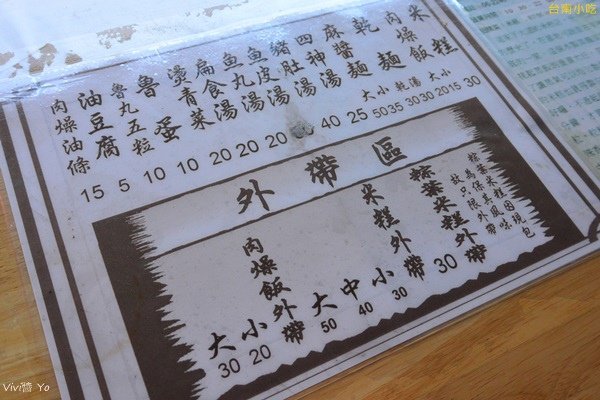 台南小吃
米糕 30
肉燥飯 大 20 小 15
乾麵 乾 30 湯 30
麻醬麵 大 50 小 35
四神湯 25
豬肚湯 40
魚皮湯
魚丸湯 20
扁食湯 20
燙青菜 20
魯蛋 10
魯丸五粒 10
油豆腐 5
肉燥油條 15
外帶區
粽葉米糕因現包
為保其風味
故只限外帶
粽葉米糕外帶 30
米糕外帶 大 50 中 40 小 30
肉燥飯外帶 大 30 小 20
Vivi醬 Yo